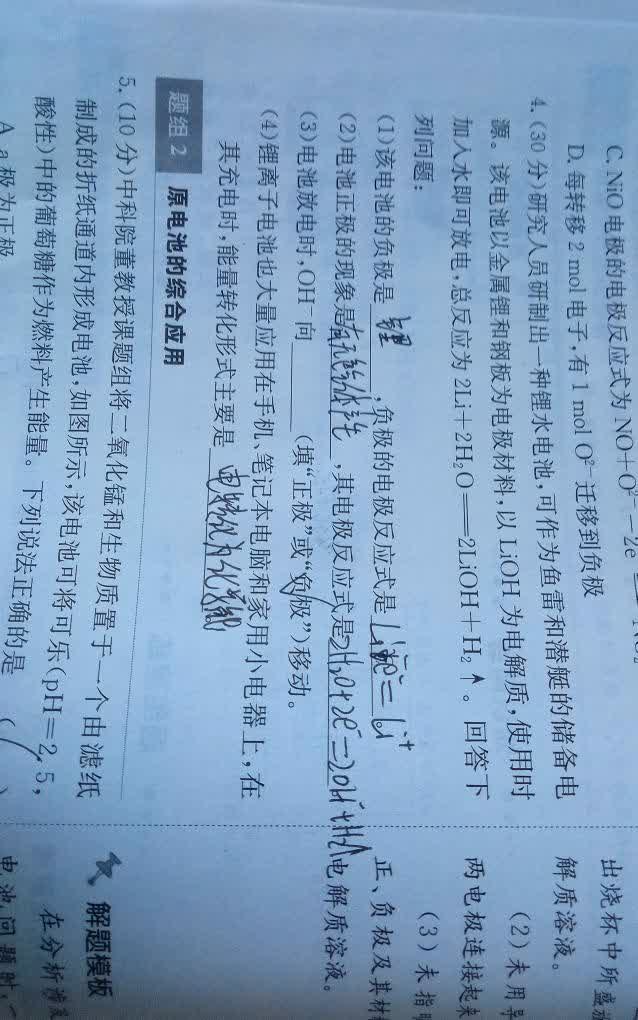 C. NiO电极的电极反应式为NO+O²⁻-2e⁻
D. 每转移2 mol电子,有1 mol O²⁻迁移到负极
4.(30分)研究人员研制出一种锂水电池,可作为鱼雷和潜艇的储备电
源。该电池以金属锂和钢板为电极材料,以LiOH为电解质,使用时
加入水即可放电,总反应为2Li+2H₂O══2LiOH+H₂↑。回答下
列问题:
(1)该电池的负极是锂,负极的电极反应式是Li-e⁻=Li⁺
(2)电池正极的现象是有气体产生,其电极反应式是2H₂O+2e⁻=2OH⁻+H₂↑
(3)电池放电时,OH⁻向______(填“正极”或“负极”)移动。
(4)锂离子电池也大量应用在手机、笔记本电脑和家用小电器上,在
其充电时,能量转化形式主要是电能转化为化学能
题组2 原电池的综合应用
5.(10分)中科院董教授课题组将二氧化锰和生物质置于一个由滤纸
制成的折纸通道内形成电池,如图所示,该电池可将可乐(pH=2.5,
酸性)中的葡萄糖作为燃料产生能量。下列说法正确的是 ( )
A. a极为正极
出烧杯中所盛
解质溶液。
(2)未用导
两电极连接起来
(3)未指明
正、负极及其材
电解质溶液。
解题模板
在分析
电池问题时,一